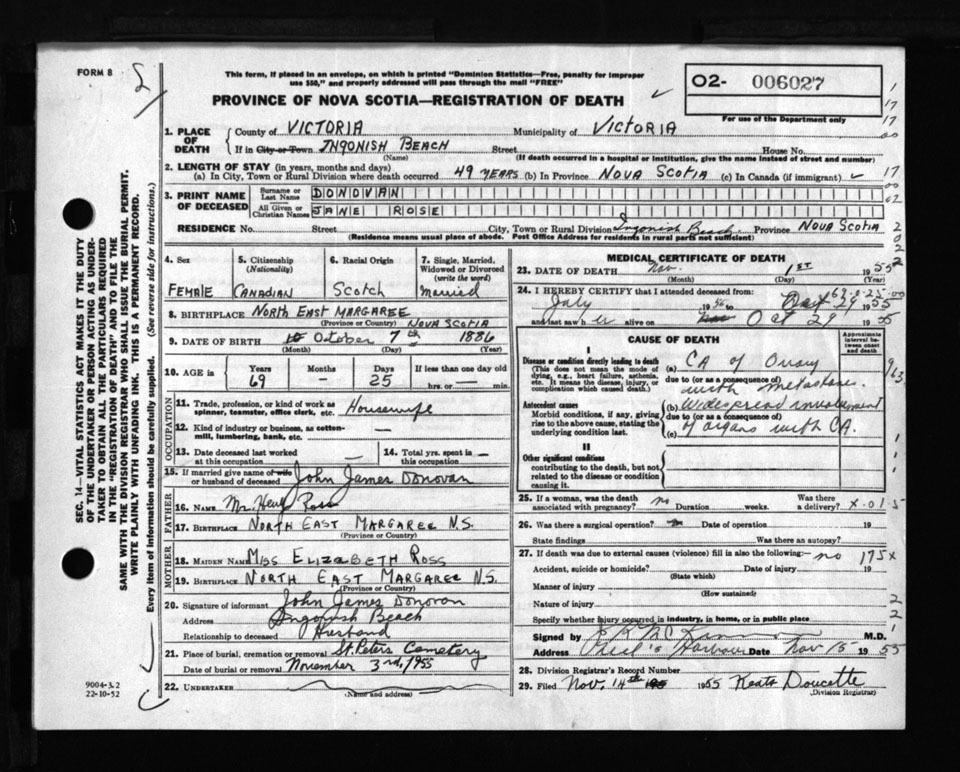 FORM 8
This form, if placed in an envelope, on which is printed "Dominion Statistics—Free, penalty for improper
use $50," and properly addressed will pass through the mail "FREE"
PROVINCE OF NOVA SCOTIA—REGISTRATION OF DEATH
O2- 006027
For use of the Department only
SEC. 14—VITAL STATISTICS ACT MAKES IT THE DUTY
OF THE UNDERTAKER OR PERSON ACTING AS UNDER-
TAKER TO OBTAIN ALL THE PARTICULARS REQUIRED
IN THE "REGISTRATION OF DEATH" AND TO FILE THE
SAME WITH THE DIVISION REGISTRAR WHO SHALL ISSUE THE BURIAL PERMIT.
WRITE PLAINLY WITH UNFADING INK. THIS IS A PERMANENT RECORD.
Every item of information should be carefully supplied. (See reverse side for instructions.)
1. PLACE OF DEATH County of VICTORIA Municipality of VICTORIA
If in City or Town INGONISH BEACH Street House No.
(Name) (If death occurred in a hospital or institution, give the name instead of street and number)
2. LENGTH OF STAY (in years, months and days)
(a) In City, Town or Rural Division where death occurred 49 YEARS (b) In Province NOVA SCOTIA (c) In Canada (if immigrant)
3. PRINT NAME OF DECEASED Surname or Last Name DONOVAN
All Given or Christian Names JANE ROSE
RESIDENCE No. Street City, Town or Rural Division Ingonish Beach Province NOVA SCOTIA
(Residence means usual place of abode. Post Office Address for residents in rural parts not sufficient)
4. Sex 5. Citizenship (Nationality) 6. Racial Origin 7. Single, Married, Widowed or Divorced (write the word)
FEMALE CANADIAN Scotch Married
8. BIRTHPLACE NORTH EAST MARGAREE NOVA SCOTIA
(Province or Country)
9. DATE OF BIRTH October 7th 1886
(Month) (Day) (Year)
10. AGE in Years Months Days If less than one day old
69 – 25 hrs. or min.
OCCUPATION
11. Trade, profession, or kind of work as spinner, teamster, office clerk, etc. Housewife
12. Kind of industry or business, as cotton-mill, lumbering, bank, etc. —
13. Date deceased last worked at this occupation — 14. Total yrs. spent in this occupation —
15. If married give name of wife or husband of deceased John James Donovan
FATHER
16. Name Mr. Henry Ross
17. BIRTHPLACE NORTH EAST MARGAREE N.S.
(Province or Country)
MOTHER
18. MAIDEN NAME MISS ELIZABETH ROSS
19. BIRTHPLACE NORTH EAST MARGAREE N.S.
(Province or Country)
20. Signature of informant John James Donovan
Address Ingonish Beach
Relationship to deceased Husband
21. Place of burial, cremation or removal St. Peters Cemetery
Date of burial or removal November 3rd, 1955
22. UNDERTAKER
(Name and address)
9004-3.2
22-10-52
MEDICAL CERTIFICATE OF DEATH
23. DATE OF DEATH Nov. 1ST 1955
(Month) (Day)
24. I HEREBY CERTIFY that I attended deceased from:
July 19 to Oct 29 1955
and last saw her alive on Oct 29 1955
CAUSE OF DEATH
Approximate interval between onset and death
I
Disease or condition directly leading to death
(This does not mean the mode of dying, e.g., heart failure, asthenia, etc. It means the disease, injury, or complication which caused death.)
(a) CA of Ovary
due to (or as a consequence of)
with metastases
Antecedent causes
Morbid conditions, if any, giving rise to the above cause, stating the underlying condition last.
(b) Widespread involvement
due to (or as a consequence of)
(c) of organs with CA.
II
Other significant conditions
contributing to the death, but not related to the disease or condition causing it.
25. If a woman, was the death associated with pregnancy? no Duration weeks. Was there a delivery? X-01-5
26. Was there a surgical operation? no Date of operation 19
State findings Was there an autopsy?
27. If death was due to external causes (violence) fill in also the following:— no 175X
Accident, suicide or homicide? Date of injury 19
(State which)
Manner of injury
(How sustained)
Nature of injury
Specify whether injury occurred in industry, in home, or in public place
Signed by M.D.
Address Neil's Harbour Nov 15 1955
28. Division Registrar's Record Number
29. Filed Nov. 14th 1955 Keats Doucette
(Division Registrar)